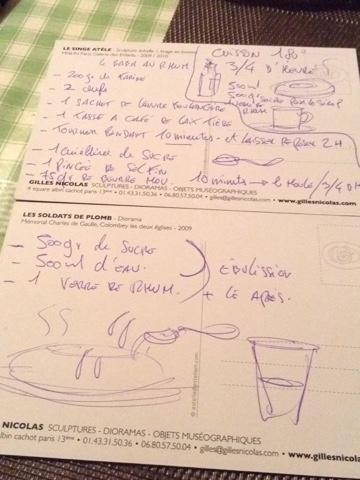 LE SINGE ATÈLE - Sculpture
Galerie des Enfants - 2009 / 2010
CUISSON 180°
3/4 D'HEURE
BABA AU RHUM
500ml
500gr SUCRE POUR LE SIROP
1 VERRE DE RHUM
- 200gr de FARINE
- 2 oeufs
- 1 SACHET DE LEVURE BOULANGÈRE
- 1 TASSE A CAFÉ DE LAIT TIÈDE
- TOURNER PENDANT 10 minutes - et LAISSER REPOSER 2H
- 1 cuillère de SUCRE
- 1 PINCÉE DE SEL FIN
- 75gr DE BEURRE MOU
10 minutes
GILLES NICOLAS SCULPTURES - DIORAMAS - OBJETS MUSÉOGRAPHIQUES
4 square albin cachot paris 13ème • 01.43.31.50.36 • 06.80.57.50.04 • gilles@gillesnicolas.com • www.gillesnicolas.com
LES SOLDATS DE PLOMB - Diorama
Mémorial Charles de Gaulle, Colombey les deux églises - 2009
- 500gr de SUCRE
- 500ml d'EAU.
- 1 VERRE DE RHUM.
ÉBULISSION
+ LE APRÈS.
NICOLAS SCULPTURES - DIORAMAS - OBJETS MUSÉOGRAPHIQUES
albin cachot paris 13ème • 01.43.31.50.36 • 06.80.57.50.04 • gilles@gillesnicolas.com • www.gillesnicolas.co